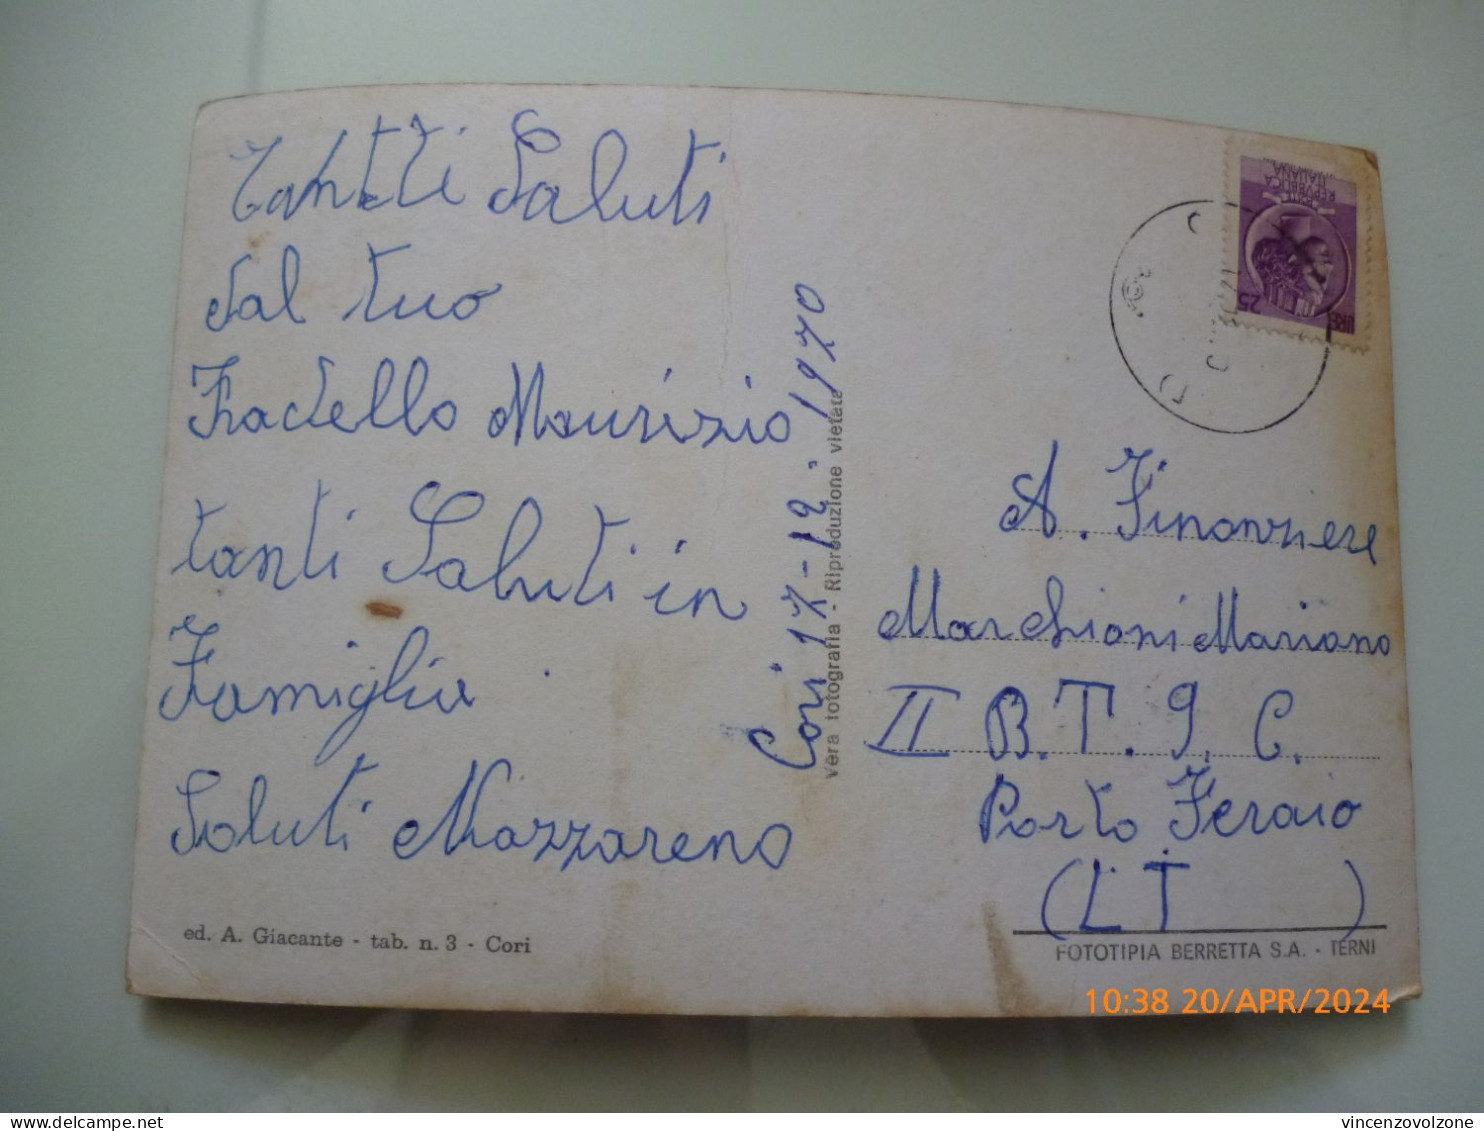 Tantti Saluti
dal tuo
Fradello Maurizio
tanti Saluti in
Famiglia
Saluti Nazzareno
ed. A. Giacante - tab. n. 3 - Cori
Cori 17-12-1970
vera fotografia - Riproduzione vietata
REPVBBLICA
ITALIANA
LIRE 25
A. Finanziere
Marchioni Mariano
II B.T.G.C.
Porto Feraio
(LT )
FOTOTIPIA BERRETTA S.A. - TERNI
10:38 20/APR/2024
vincenzovolzone